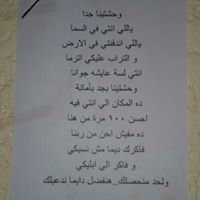 وحشتينا جدا
ياللي انتي في السما
ياللي اندفنتي في الارض
و التراب عليكي اترما
انتي لسة عايشه جوانا
وحشتينا بجد بأمانة
ده المكان الي انتي فيه
احسن ١٠٠ مرة من هنا
ده مفيش احن من ربنا
فاكرك ديما مش نسيكي
و فاكر الي ابليكي
ولحد منحصلك..هنفضل دايما ندعيلك